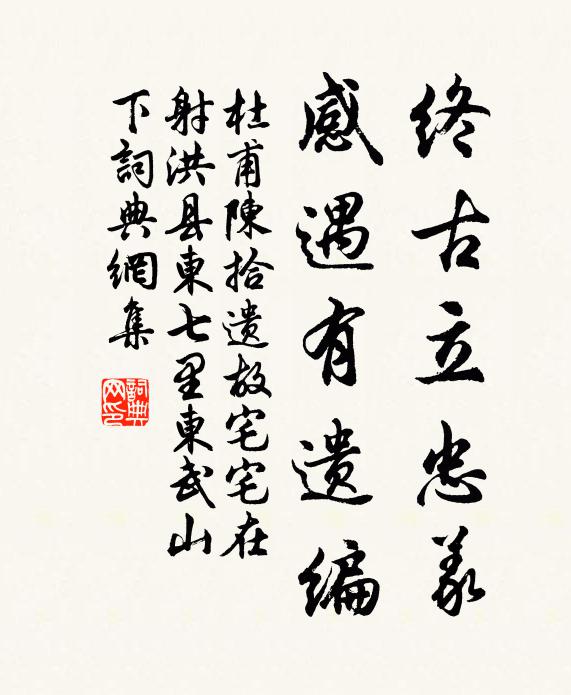 终古立忠义
感遇有遗编
杜甫陳拾遗故宅宅在
射洪县東七里東武山
下詞典網集
詞典网印